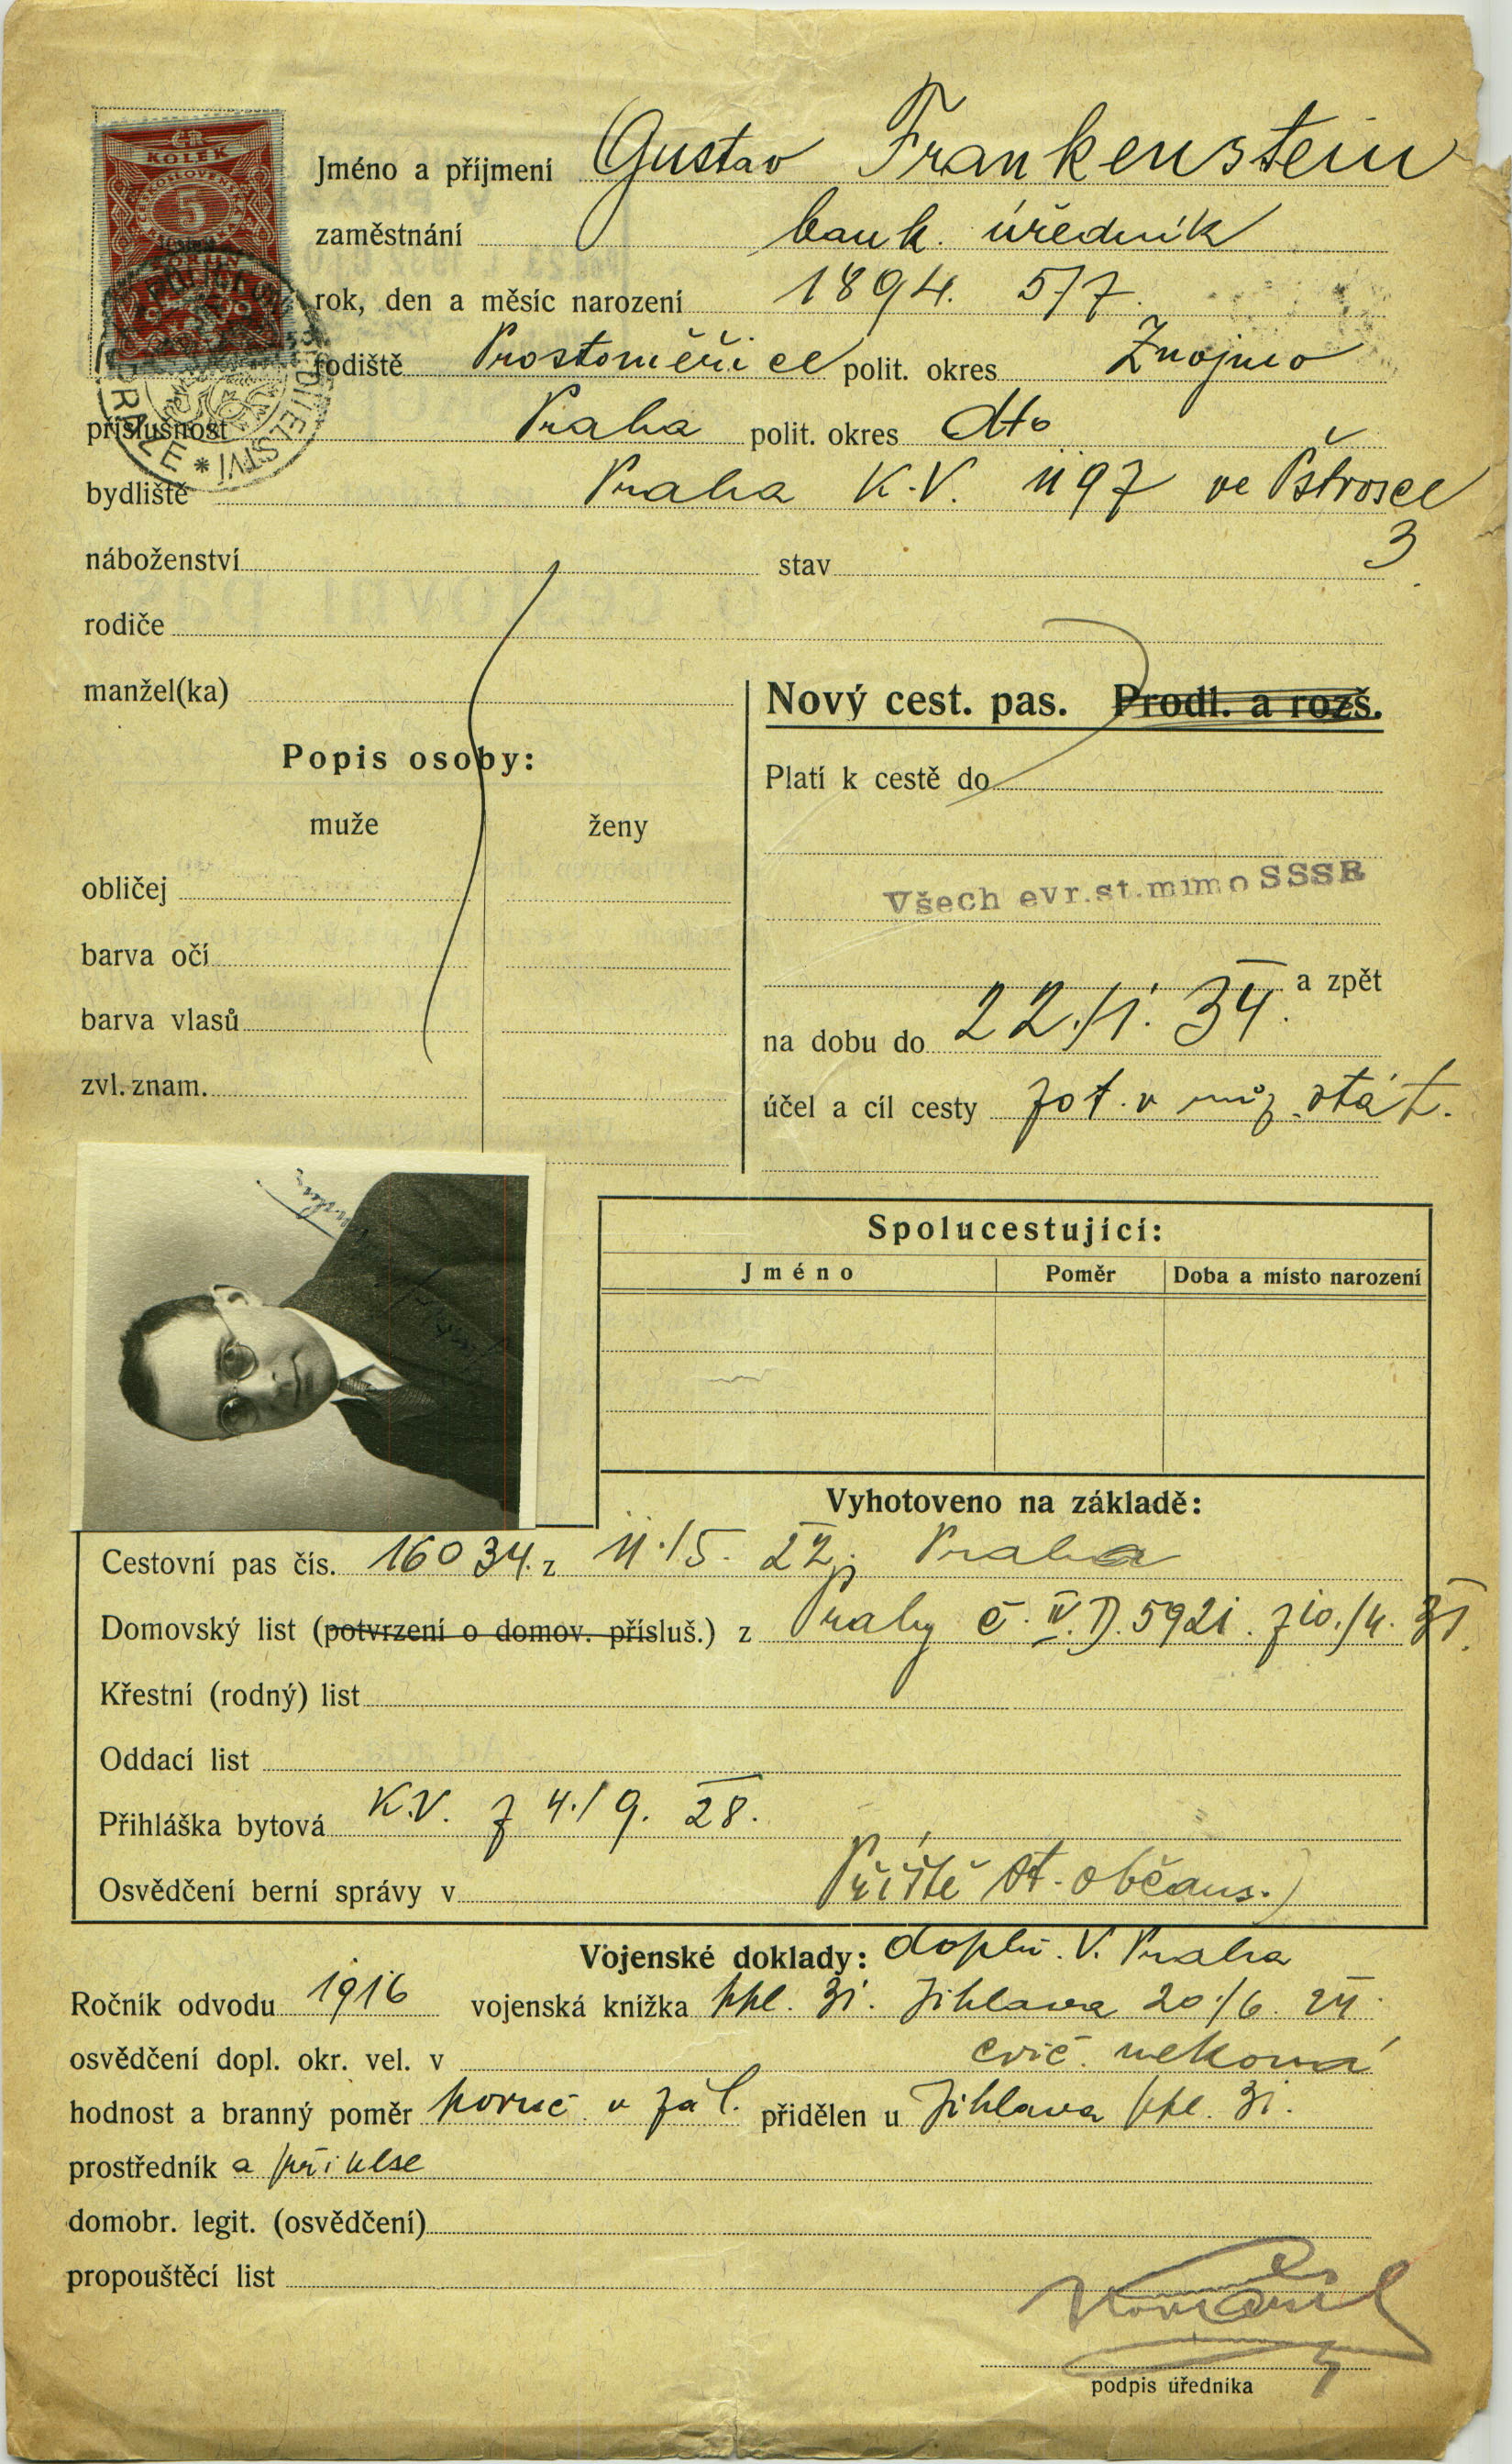 KOLEK
5
Jméno a příjmení Gustav Frankenstein
zaměstnání bank. úředník
rok, den a měsíc narození 1894. 5/7.
rodiště Prostoměřice polit. okres Znojmo
příslušnost Praha polit. okres dto
bydliště Praha K.V. 1197 ve Pštrosce
3
náboženství stav
rodiče
manžel(ka)
Nový cest. pas. Prodl. a rozš.
Popis osoby:
Platí k cestě do
muže ženy
obličej
Všech evr.st.mimo SSSR
barva očí
a zpět
barva vlasů
na dobu do 22./1. 34.
zvl. znam.
účel a cíl cesty zot. v stát.
Spolucestující:
Jméno Poměr Doba a místo narození
Vyhotoveno na základě:
Cestovní pas čís. 16034. z 11./5. 27. Praha
Domovský list (potvrzení o domov. přísluš.) z Prahy č. IV.D.5921. z 10./4. 31.
Křestní (rodný) list
Oddací list
Přihláška bytová K.V. z 4./9. 28.
Osvědčení berní správy v Příště st. občans.)
Vojenské doklady: doplň. V. Praha
Ročník odvodu 1916 vojenská knížka ppl. 31. Jihlava 20./6. 24.
osvědčení dopl. okr. vel. v cvič. nekoná
hodnost a branný poměr poruč. v zál. přidělen u Jihlava ppl. 31.
prostředník a
domobr. legit. (osvědčení)
propouštěcí list
podpis úředníka